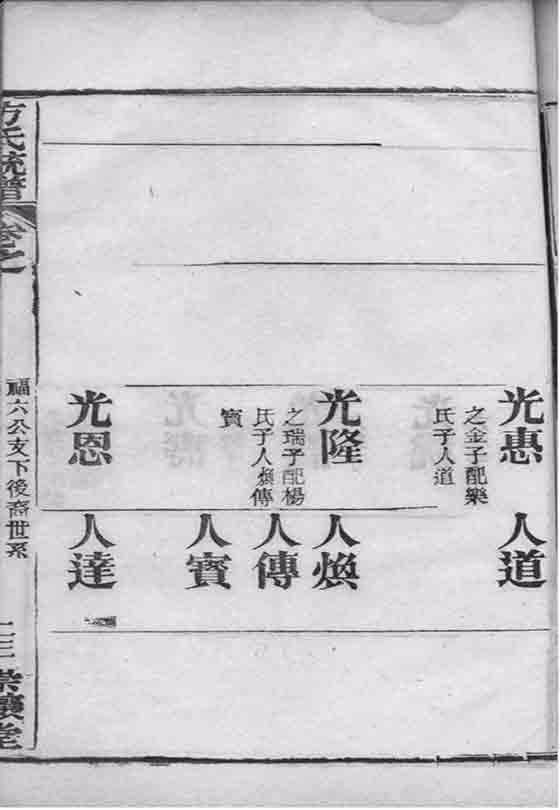 光惠
之金子配樂
氏子人道
光隆
之瑞子配楊
氏子人煥傳
寳
光恩
人道
人煥
人傳
人寳
人達
方氏統譜
卷之
福六公支下後裔世系